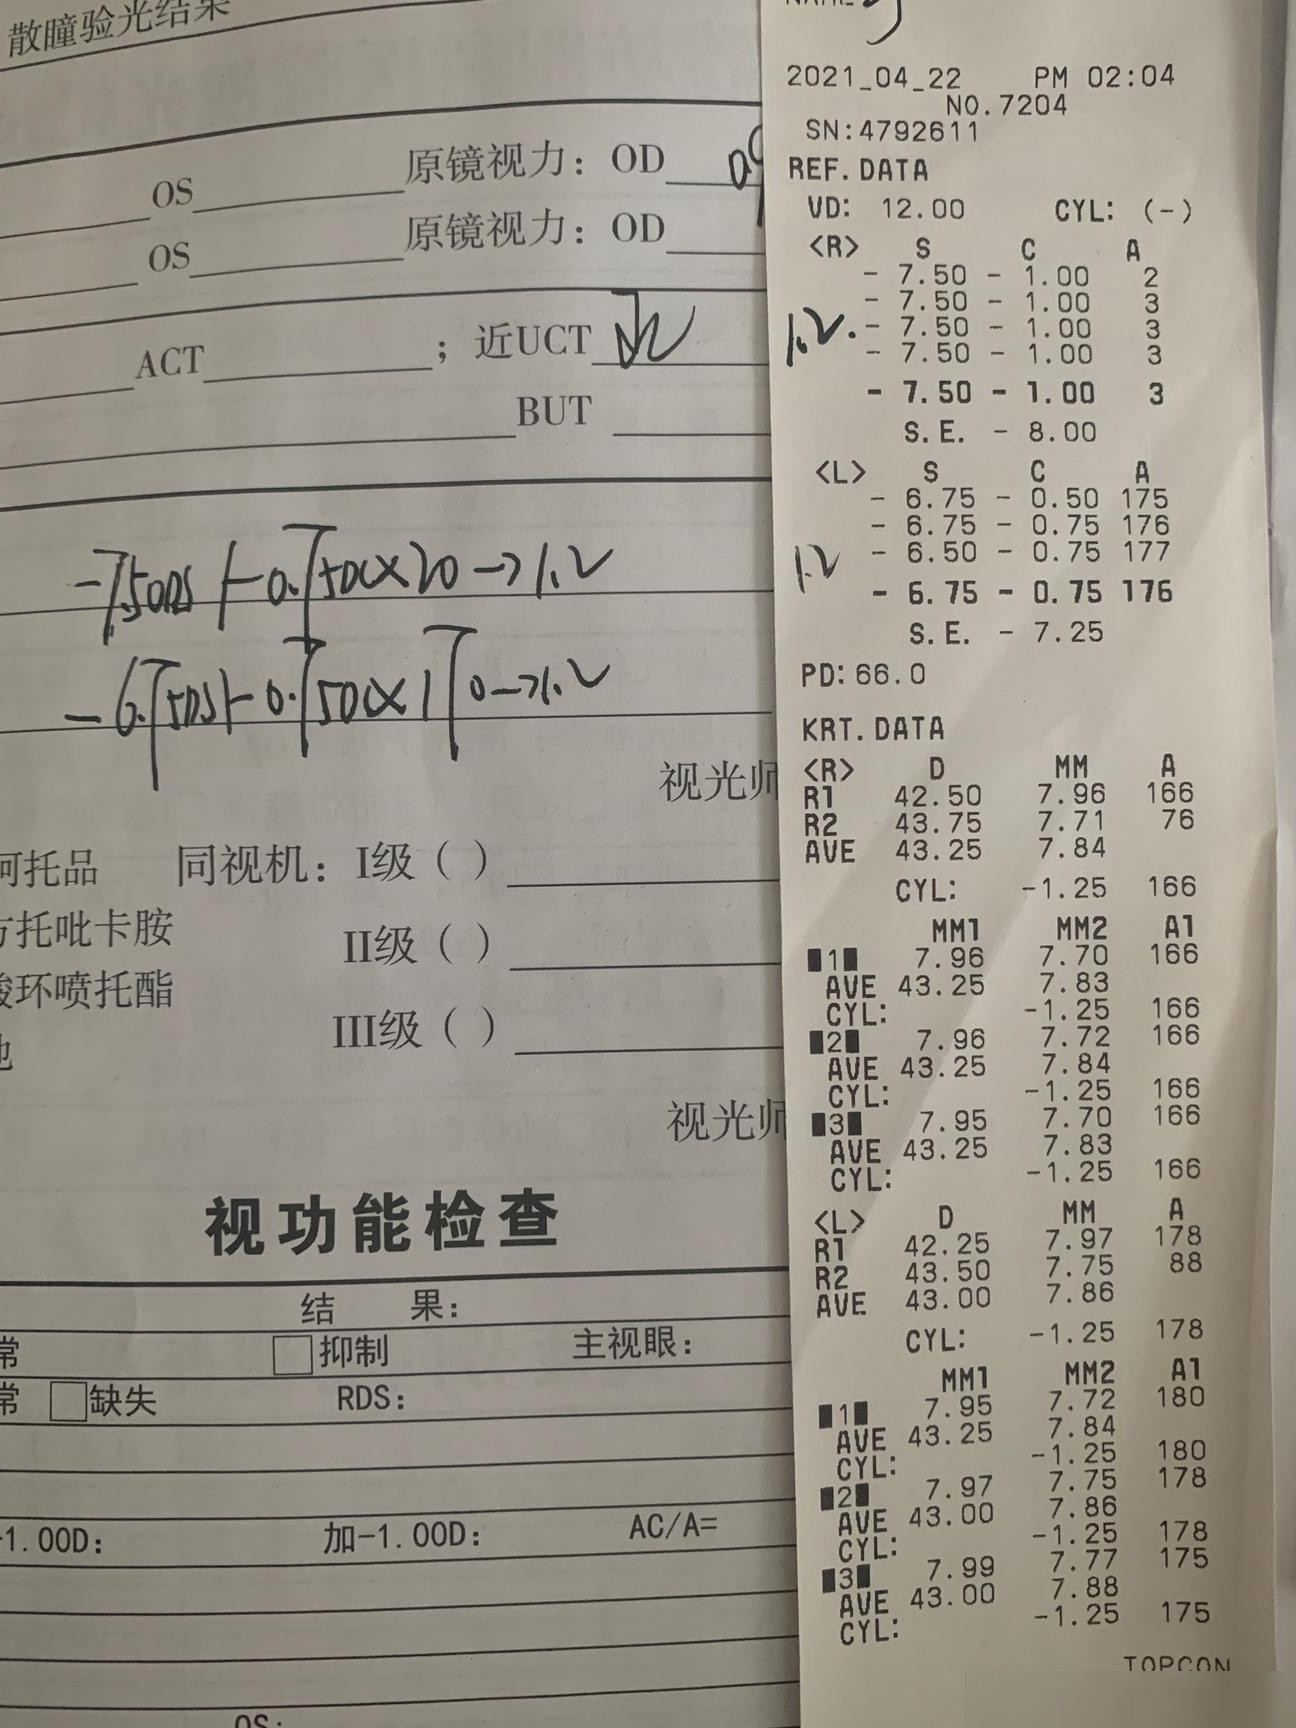 散瞳验光结果
OS 原镜视力：OD
OS 原镜视力：OD
ACT ；近UCT
BUT
-7.50DS/-0.75DC×20→1.2
-6.75DS/-0.75DC×170→1.2
视光师
阿托品 同视机：I级（ ）
方托吡卡胺
II级（ ）
酸环喷托酯
III级（ ）
视光师
视功能检查
结 果：
常 抑制 主视眼：
常 缺失 RDS：
1.00D： 加-1.00D： AC/A=
OS：
NAME
2021_04_22 PM 02:04
NO.7204
SN:4792611
REF.DATA
VD: 12.00 CYL: (-)
<R> S C A
- 7.50 - 1.00 2
- 7.50 - 1.00 3
1.2. - 7.50 - 1.00 3
- 7.50 - 1.00 3
- 7.50 - 1.00 3
S.E. - 8.00
<L> S C A
- 6.75 - 0.50 175
- 6.75 - 0.75 176
1.2 - 6.50 - 0.75 177
- 6.75 - 0.75 176
S.E. - 7.25
PD: 66.0
KRT.DATA
<R> D MM A
R1 42.50 7.96 166
R2 43.75 7.71 76
AVE 43.25 7.84
CYL: -1.25 166
MM1 MM2 A1
1 7.96 7.70 166
AVE 43.25 7.83
CYL: -1.25 166
2 7.96 7.72 166
AVE 43.25 7.84
CYL: -1.25 166
3 7.95 7.70 166
AVE 43.25 7.83
CYL: -1.25 166
<L> D MM A
R1 42.25 7.97 178
R2 43.50 7.75 88
AVE 43.00 7.86
CYL: -1.25 178
MM1 MM2 A1
1 7.95 7.72 180
AVE 43.25 7.84
CYL: -1.25 180
2 7.97 7.75 178
AVE 43.00 7.86
CYL: -1.25 178
3 7.99 7.77 175
AVE 43.00 7.88
CYL: -1.25 175
TOPCON